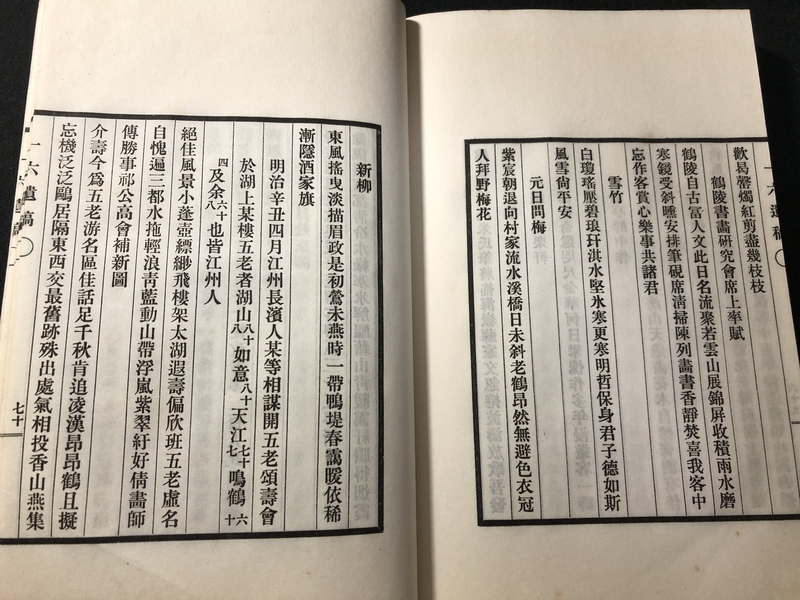 歡易罄燭紅剪盡幾枝枝
鶴陵書畫研究會席上率賦
鶴陵自古富人文此日名流聚若雲山展錦屏收積雨水磨
寒鏡受斜曛安排筆硯席淸掃陳列畫書香靜焚喜我客中
忘作客賞心樂事共諸君
雪竹
白瓊瑤壓碧琅玕淇水堅氷寒更寒明哲保身君子德如斯
風雪尙平安
元日問梅
紫宸朝退向村家流水溪橋日未斜老鶴昂然無避色衣冠
人拜野梅花
新柳
東風搖曳淡描眉政是初鶯未燕時一帶鴨堤春靄暖依稀
漸隱酒家旗
明治辛丑四月江州長濱人某等相謀開五老頌壽會
於湖上某樓五老者湖山八十八如意八十天江七十七鳴鶴六十
四及余六十八也皆江州人
絕佳風景小蓬壺縹緲飛樓架太湖遐壽偏欣班五老虛名
自愧遍三都水拖輕浪靑藍動山帶浮嵐紫翠紆好倩畫師
傳勝事祁公高會補新圖
介壽今爲五老游名區佳話足千秋肯追凌漢昂昂鶴且擬
忘機泛泛鷗居隔東西交最舊跡殊出處氣相投香山燕集
六遺稿
七十